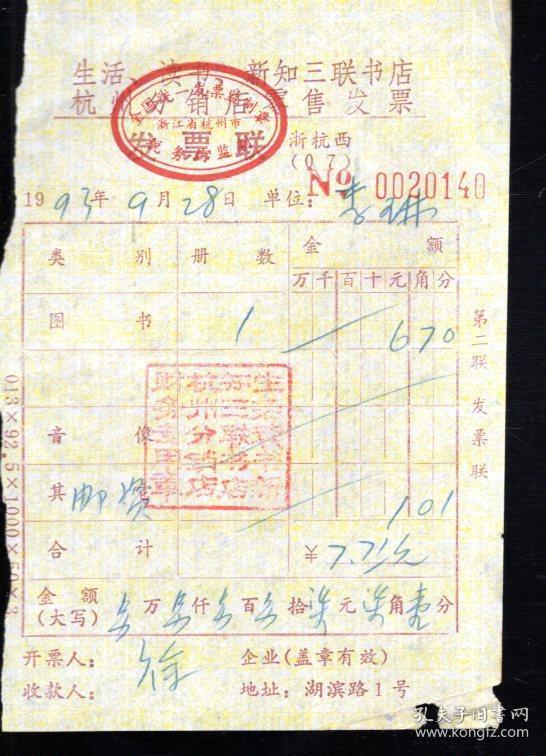 生活、读书、新知三联书店
杭州分销店零售发票
全国统一发票监制章
浙江省杭州市
税务局监制
发票联
浙杭西
(07)
№ 0020140
1993年9月28日 单位:李琳
类别 册数 金额
万千百十元角分
图书 1 670
音像
其邮资 101
合计 ¥7.71元
金额
(大写) 万 仟 百 拾柒元柒角壹分
开票人: 徐
收款人:
企业(盖章有效)
地址: 湖滨路1号
第二联 发票联
013×92.5×1000×50×3
生活读书新
知三联书店
杭州分销店
财务专用章
孔夫子旧书网
www.kongfz.com